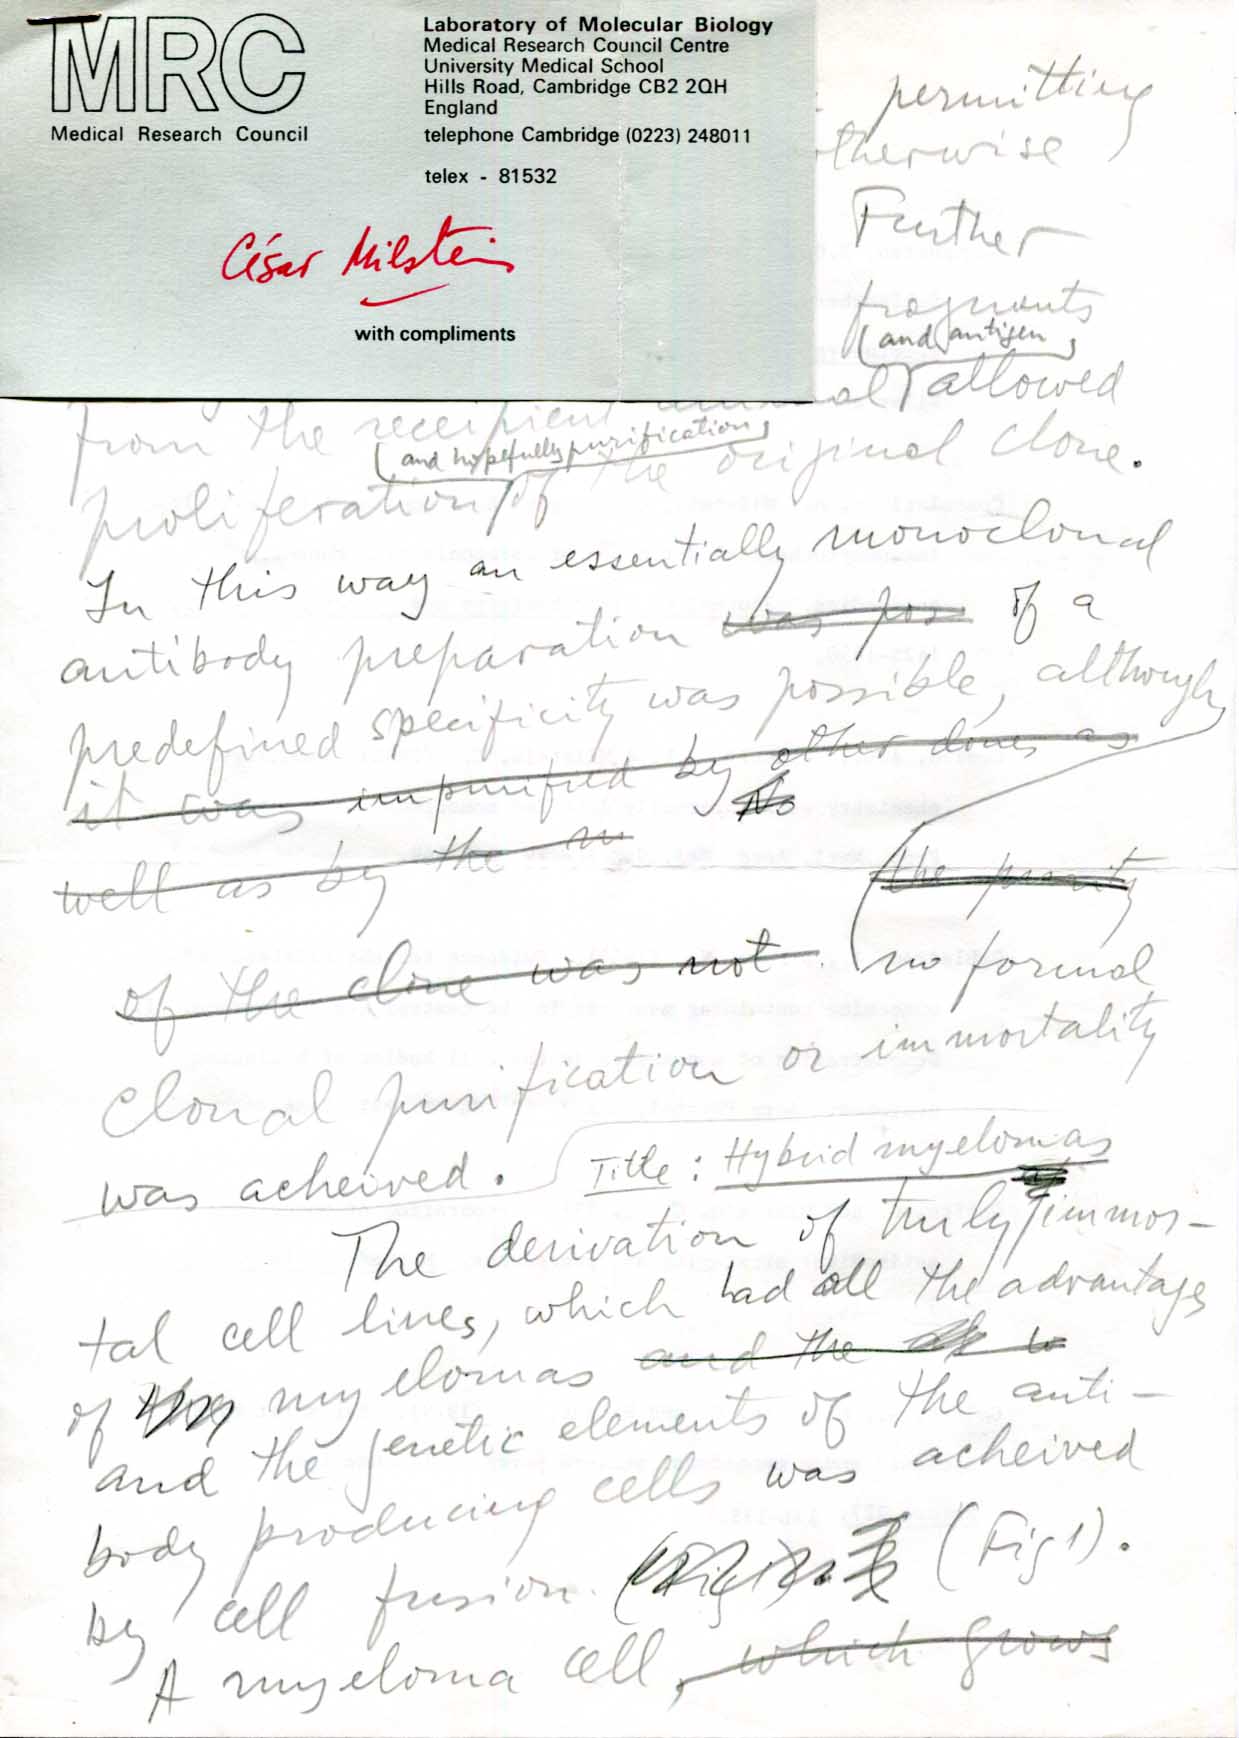 MRC
Medical Research Council
Laboratory of Molecular Biology
Medical Research Council Centre
University Medical School
Hills Road, Cambridge CB2 2QH
England
telephone Cambridge (0223) 248011
telex - 81532
César Milstein
with compliments
permitting
otherwise
Further
fragments
(and antigen)
from the recipient animal allowed
(and hopefully purification)
proliferation of the original clone.
In this way an essentially monoclonal
antibody preparation was pos of a
predefined specificity was possible, although
it was impurified by other clones as
No
well as by the m
the purity
of the clone was not no formal
clonal purification or immortality
was acheived.
Title: Hybrid myelomas
The derivation of truly immor-
tal cell lines, which had all the advantages
of myelomas and the
and the genetic elements of the anti-
body producing cells was acheived
by cell fusion. (Fig 1).
A myeloma cell, which grows